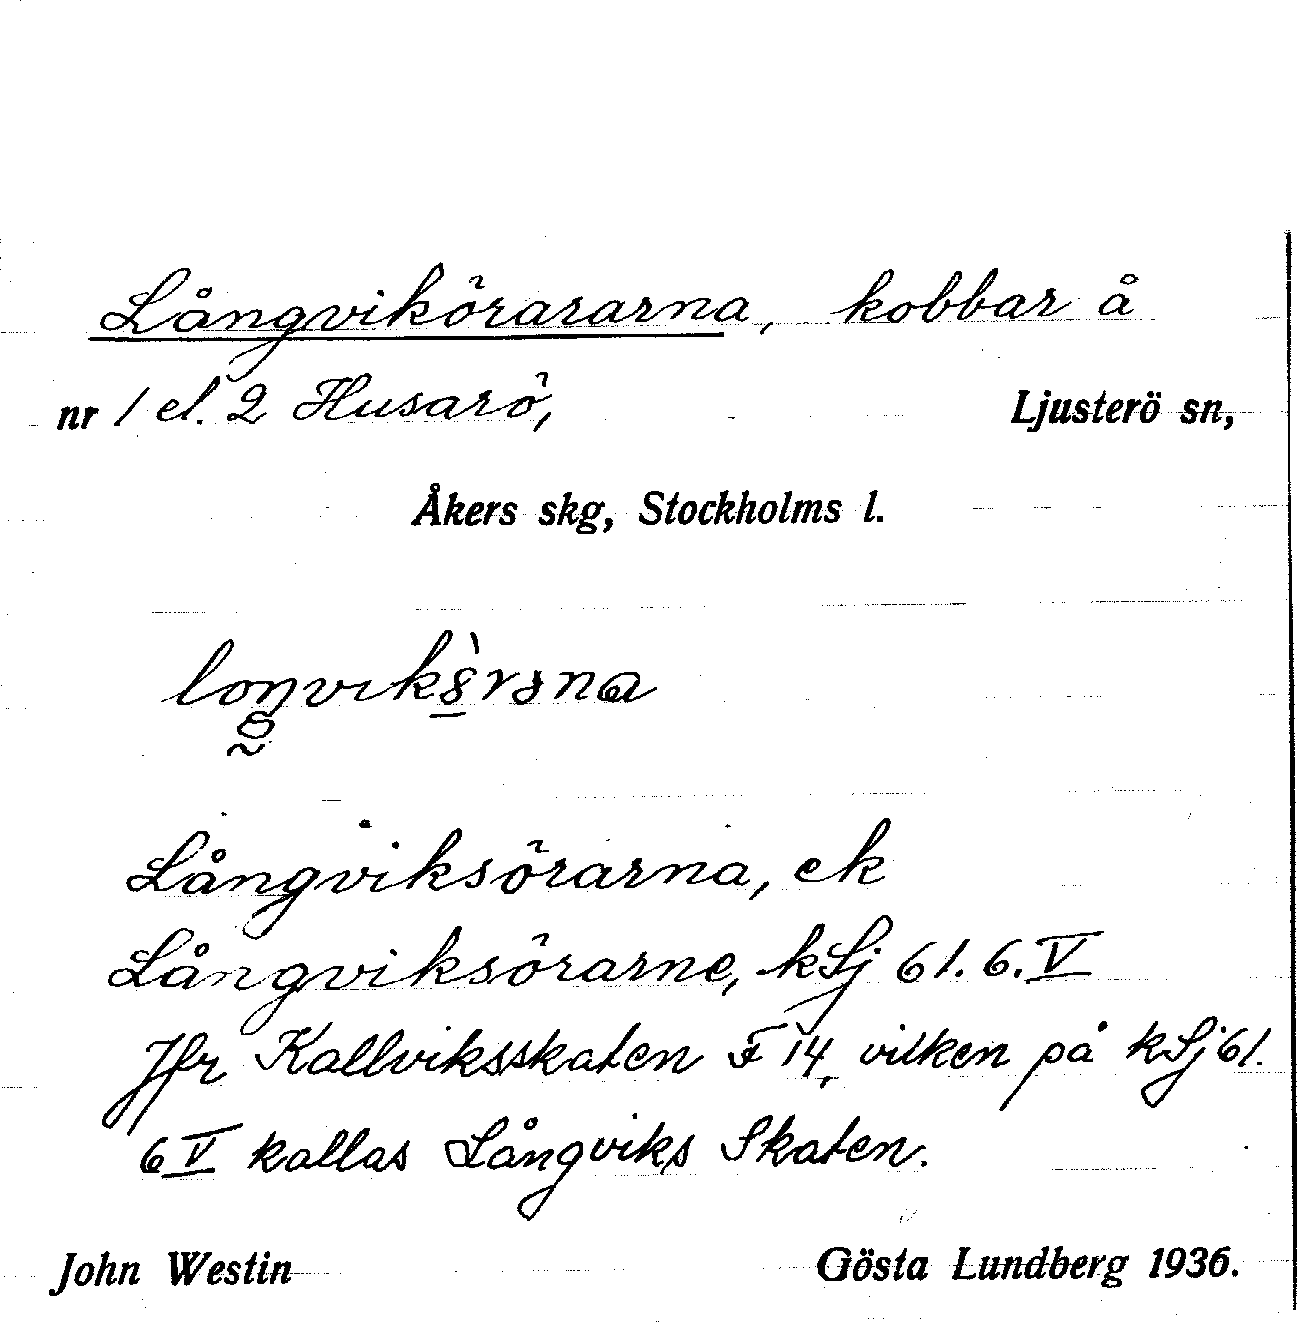 Långvikörararna, kobbar å
nr 1 el. 2 Husarö, Ljusterö sn,
Åkers skg, Stockholms l.
Långviksörarna, ek
Långviksörarne, kSj 61. 6. V
Jfr Kallviksskaten F 14, vilken på kSj 61.
6 V kallas Långviks Skaten.
John Westin Gösta Lundberg 1936.